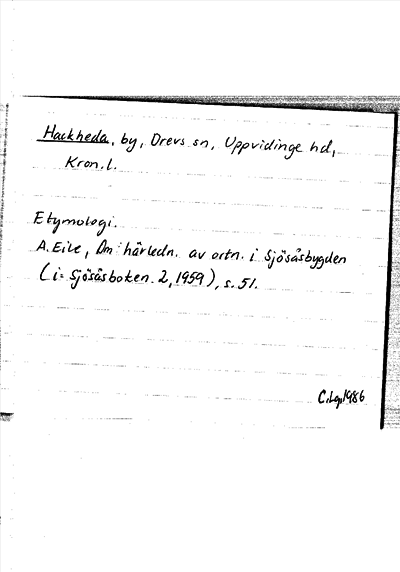 Hackheda, by, Drevs sn, Uppvidinge hd,
Kron. l.
Etymologi.
A. Eile, Om härledn. av ortn. i Sjösåsbygden
(i: Sjösåsboken 2, 1959), s. 51.
1986